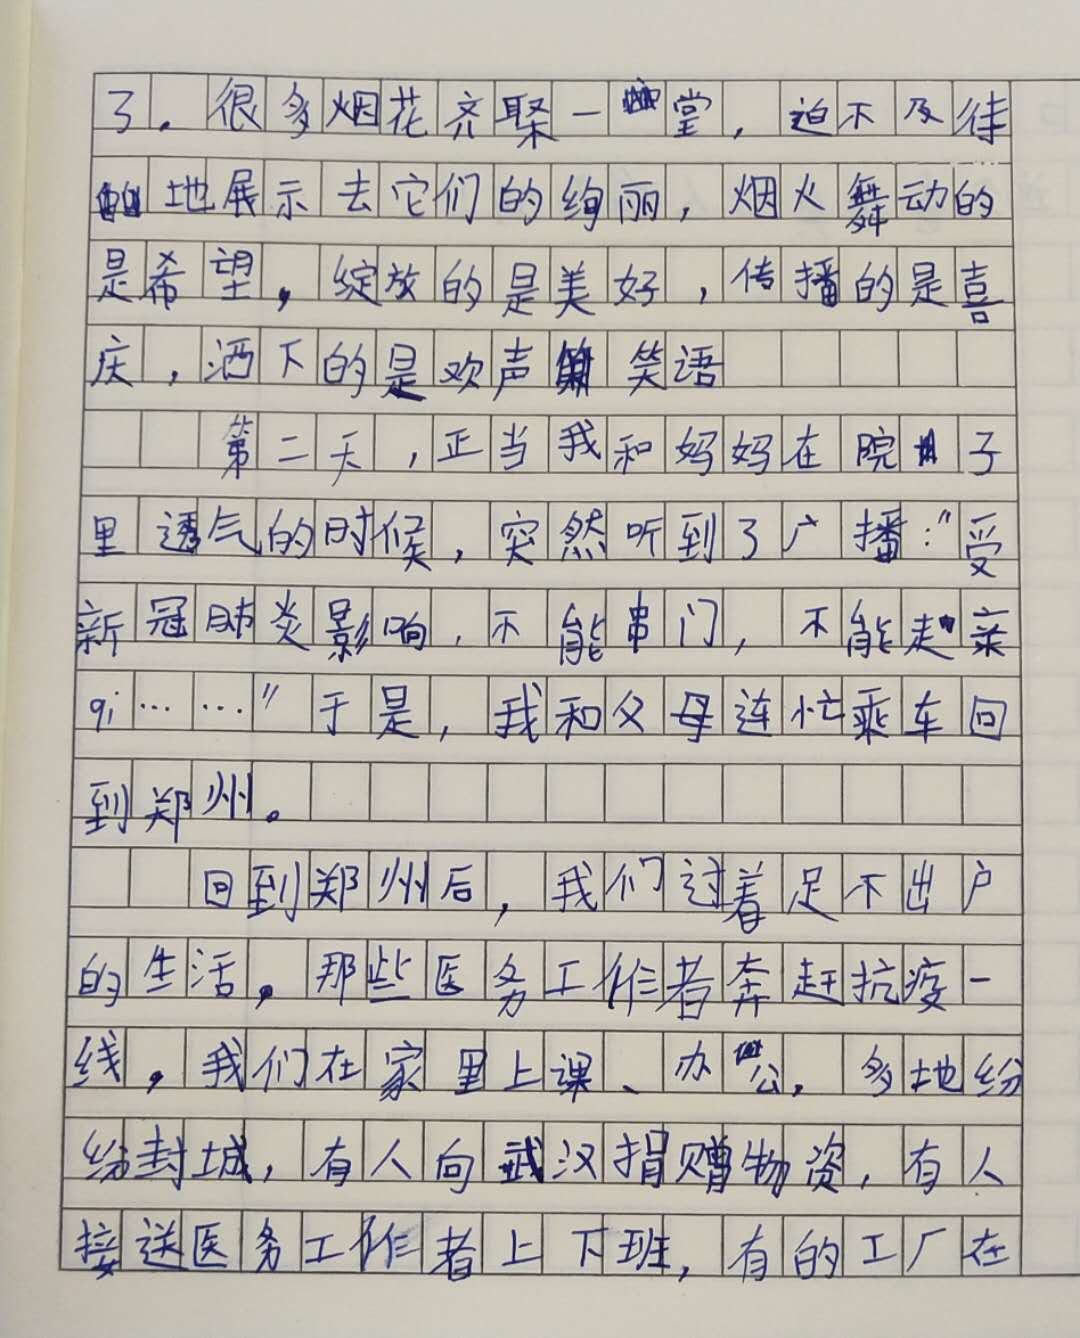 了。很多烟花齐聚一堂，迫不及待
地展示去它们的绚丽，烟火舞动的
是希望，绽放的是美好，传播的是喜
庆，洒下的是欢声笑语
第二天，正当我和妈妈在院子
里透气的时候，突然听到了广播："受
新冠肺炎影响，不能串门，不能走亲
qi……"于是，我和父母连忙乘车回
到郑州。
回到郑州后，我们过着足不出户
的生活。那些医务工作者奔赶抗疫一
线，我们在家里上课、办公，多地纷
纷封城，有人向武汉捐赠物资，有人
接送医务工作者上下班，有的工厂在